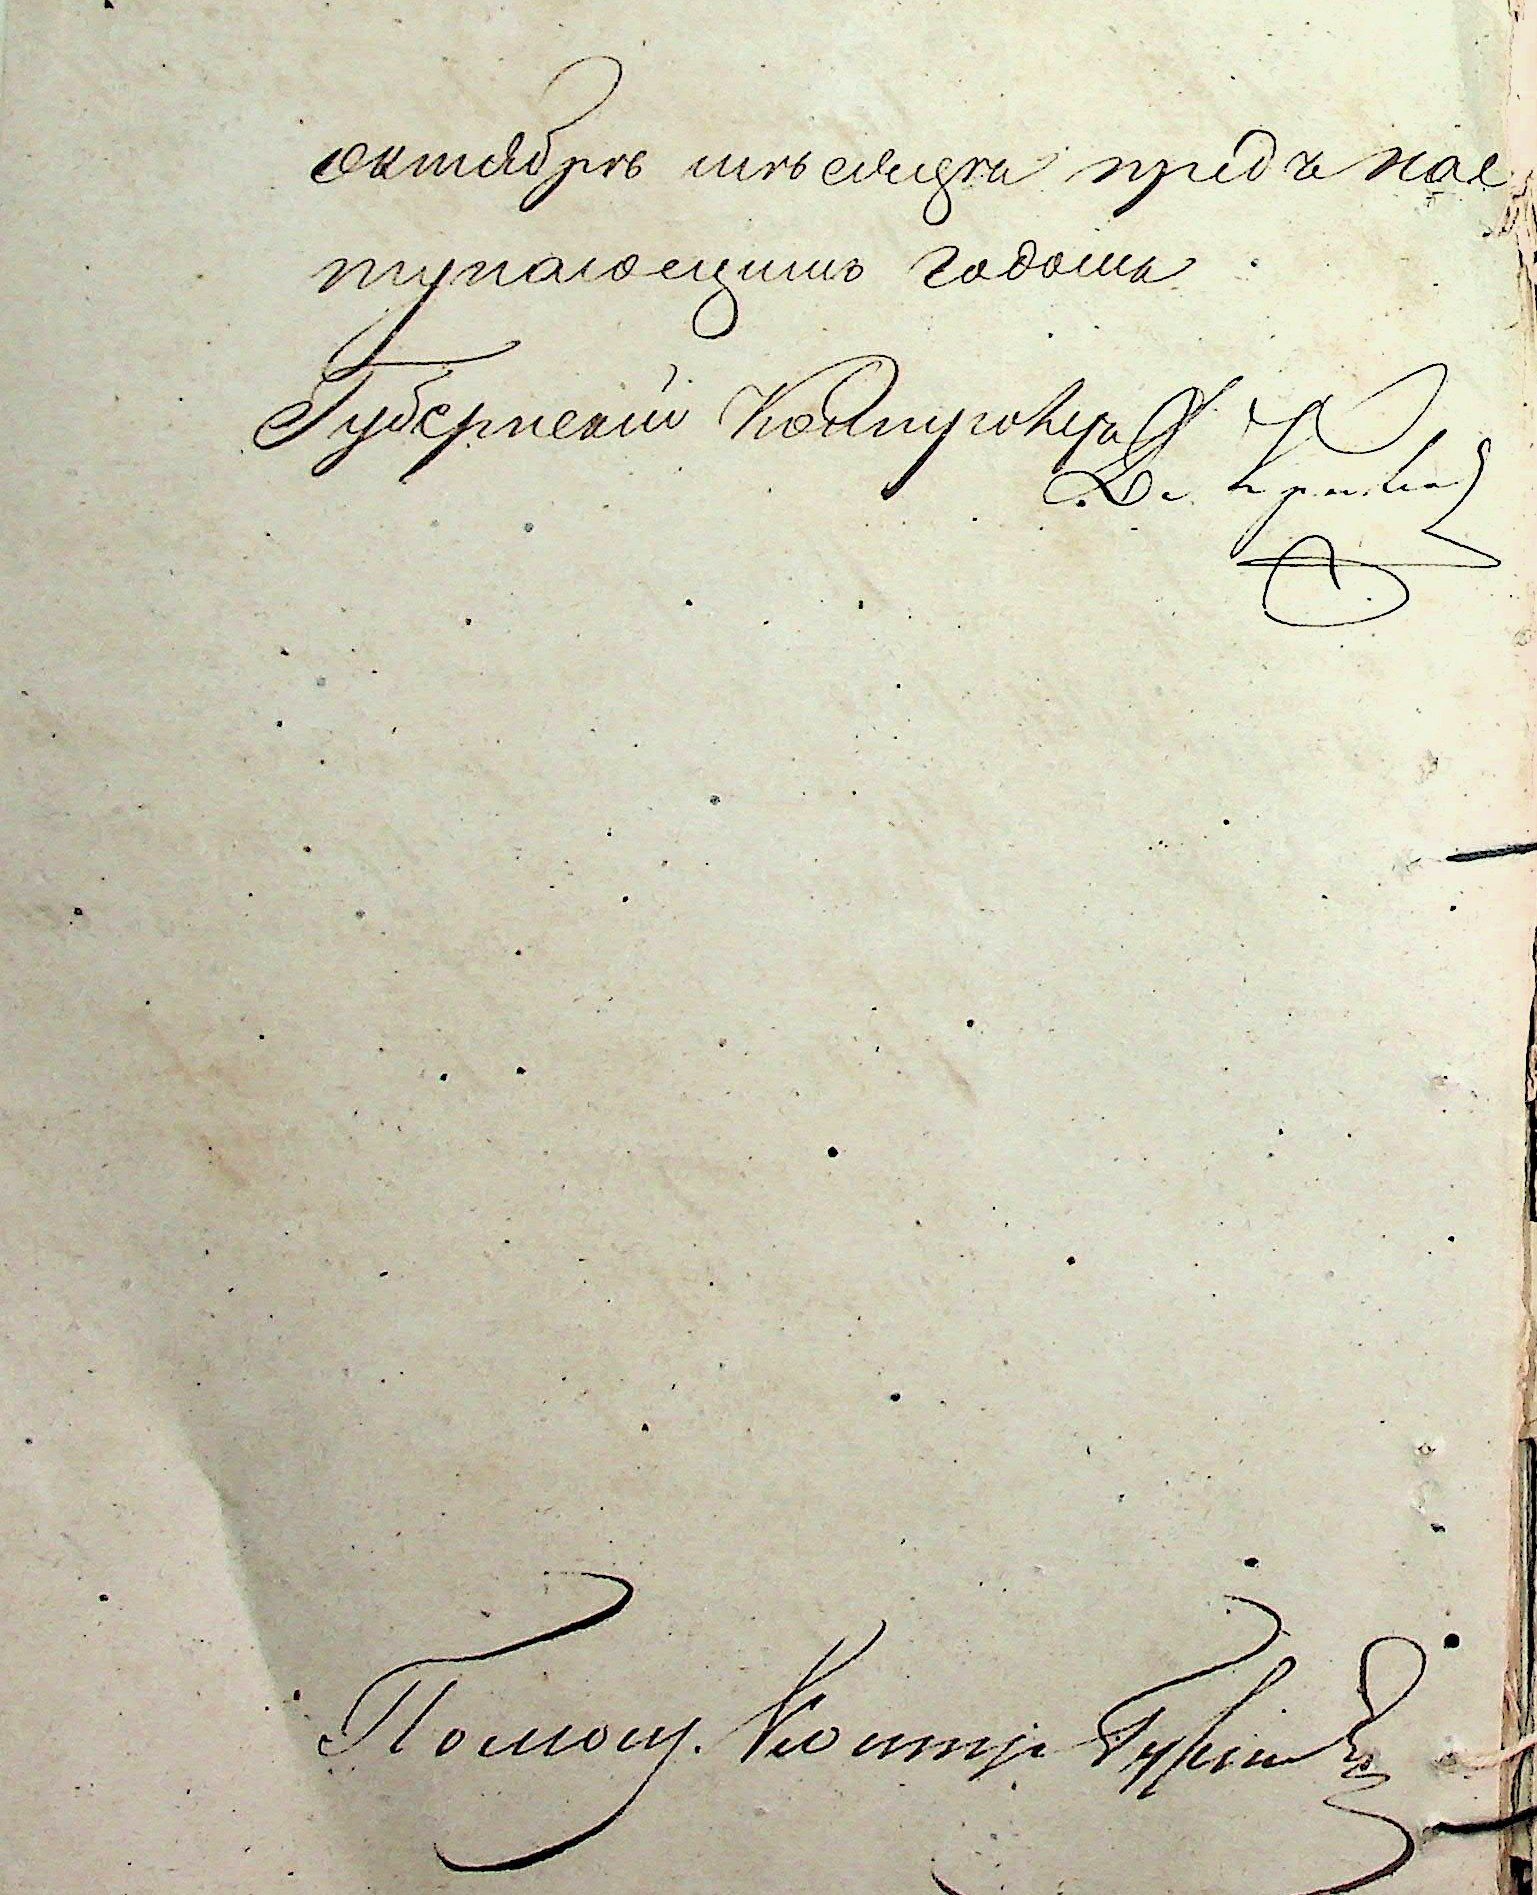 октябрѣ мѣсяцѣ предъ нас
тупающимъ годомъ
Губернскій Контролеръ
Помощ. Контр